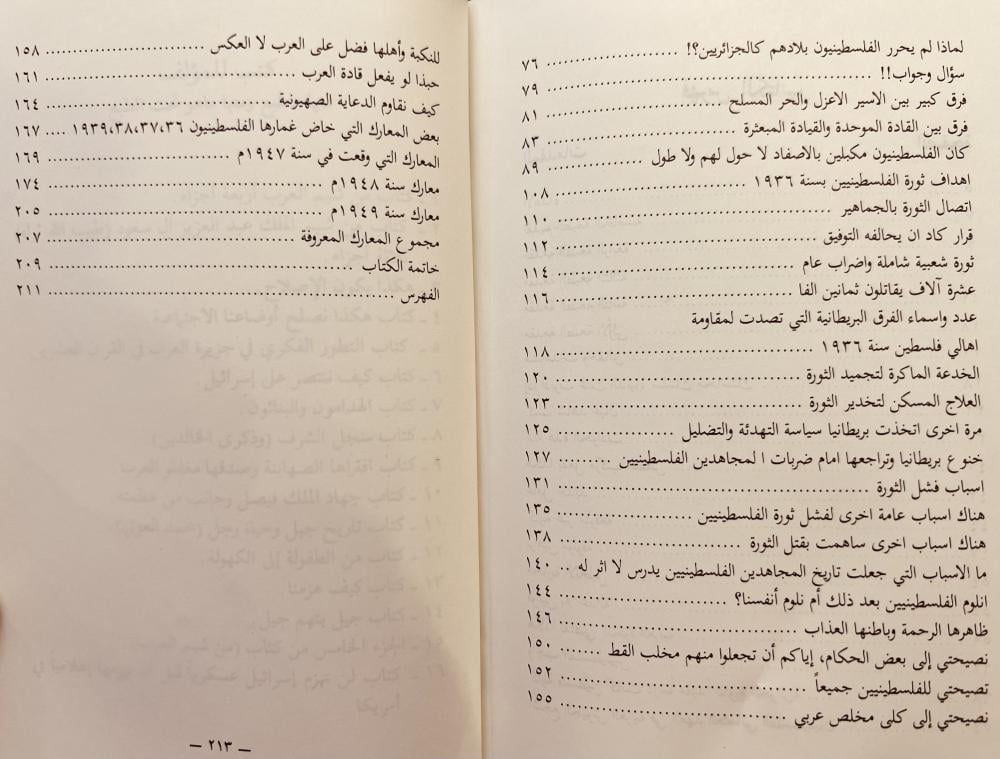 لماذا لم يحرر الفلسطينيون بلادهم كالجزائريين؟! .................... ٧٦
سؤال وجواب!! .................................................. ٧٩
فرق كبير بين الاسير الاعزل والحر المسلح ......................... ٨١
فرق بين القادة الموحدة والقيادة المبعثرة .......................... ٨٣
كان الفلسطينيون مكبلين بالاصفاد لا حول لهم ولا طول ............ ٨٩
اهداف ثورة الفلسطينيين بسنة ١٩٣٦ ........................... ١٠٨
اتصال الثورة بالجماهير ........................................ ١١٠
قرار كاد ان يحالفه التوفيق ...................................... ١١٢
ثورة شعبية شاملة واضراب عام ................................. ١١٤
عشرة آلاف يقاتلون ثمانين الفا ................................. ١١٦
عدد واسماء الفرق البريطانية التي تصدت لمقاومة
اهالي فلسطين سنة ١٩٣٦ ..................................... ١١٨
الخدعة الماكرة لتجميد الثورة ................................... ١٢٠
العلاج المسكن لتخدير الثورة ................................... ١٢٣
مرة اخرى اتخذت بريطانيا سياسة التهدئة والتضليل ................. ١٢٥
خنوع بريطانيا وتراجعها امام ضربات ا لمجاهدين الفلسطينيين ......... ١٢٧
اسباب فشل الثورة ............................................ ١٣١
هناك اسباب عامة اخرى لفشل ثورة الفلسطينيين .................. ١٣٥
هناك اسباب اخرى ساهمت بقتل الثورة ........................... ١٣٨
ما الاسباب التي جعلت تاريخ المجاهدين الفلسطينيين يدرس لا اثر له .. ١٤٠
انلوم الفلسطينيين بعد ذلك أم نلوم أنفسنا؟ ....................... ١٤٤
ظاهرها الرحمة وباطنها العذاب .................................. ١٤٦
نصيحتي إلى بعض الحكام، إياكم أن تجعلوا منهم مخلب القط ....... ١٥٠
تصيحتي للفلسطينيين جميعاً .................................... ١٥٢
نصيحتي إلى كلى مخلص عربي ................................... ١٥٥
للنكبة وأهلها فضل على العرب لا العكس ........................ ١٥٨
حبذا لو يفعل قادة العرب ...................................... ١٦١
كيف نقاوم الدعاية الصهيونية ................................... ١٦٤
بعض المعارك التي خاض غمارها الفلسطينيون ١٩٣٩،٣٨،٣٧،٣٦ .... ١٦٧
المعارك التي وقعت في سنة ١٩٤٧م ............................... ١٦٩
معارك سنة ١٩٤٨م ........................................... ١٧٤
معارك سنة ١٩٤٩م ........................................... ٢٠٥
مجموع المعارك المعروفة ........................................ ٢٠٧
خاتمة الكتاب ................................................ ٢٠٩
الفهرس ..................................................... ٢١١
— ٢١٣ —